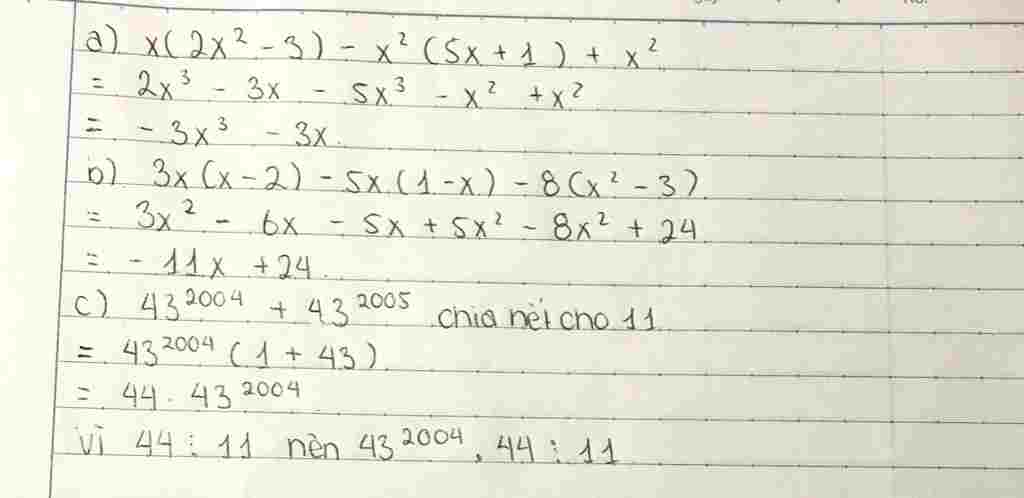 a) x(2x² - 3) - x² (5x + 1) + x²
= 2x³ - 3x - 5x³ - x² + x²
= - 3x³ - 3x.
b) 3x(x - 2) - 5x(1 - x) - 8(x² - 3)
= 3x² - 6x - 5x + 5x² - 8x² + 24
= - 11x + 24
c) 43²⁰⁰⁴ + 43²⁰⁰⁵ chia hết cho 11
= 43²⁰⁰⁴ (1 + 43)
= 44 . 43²⁰⁰⁴
Vì 44 ⋮ 11 nên 43²⁰⁰⁴ . 44 ⋮ 11